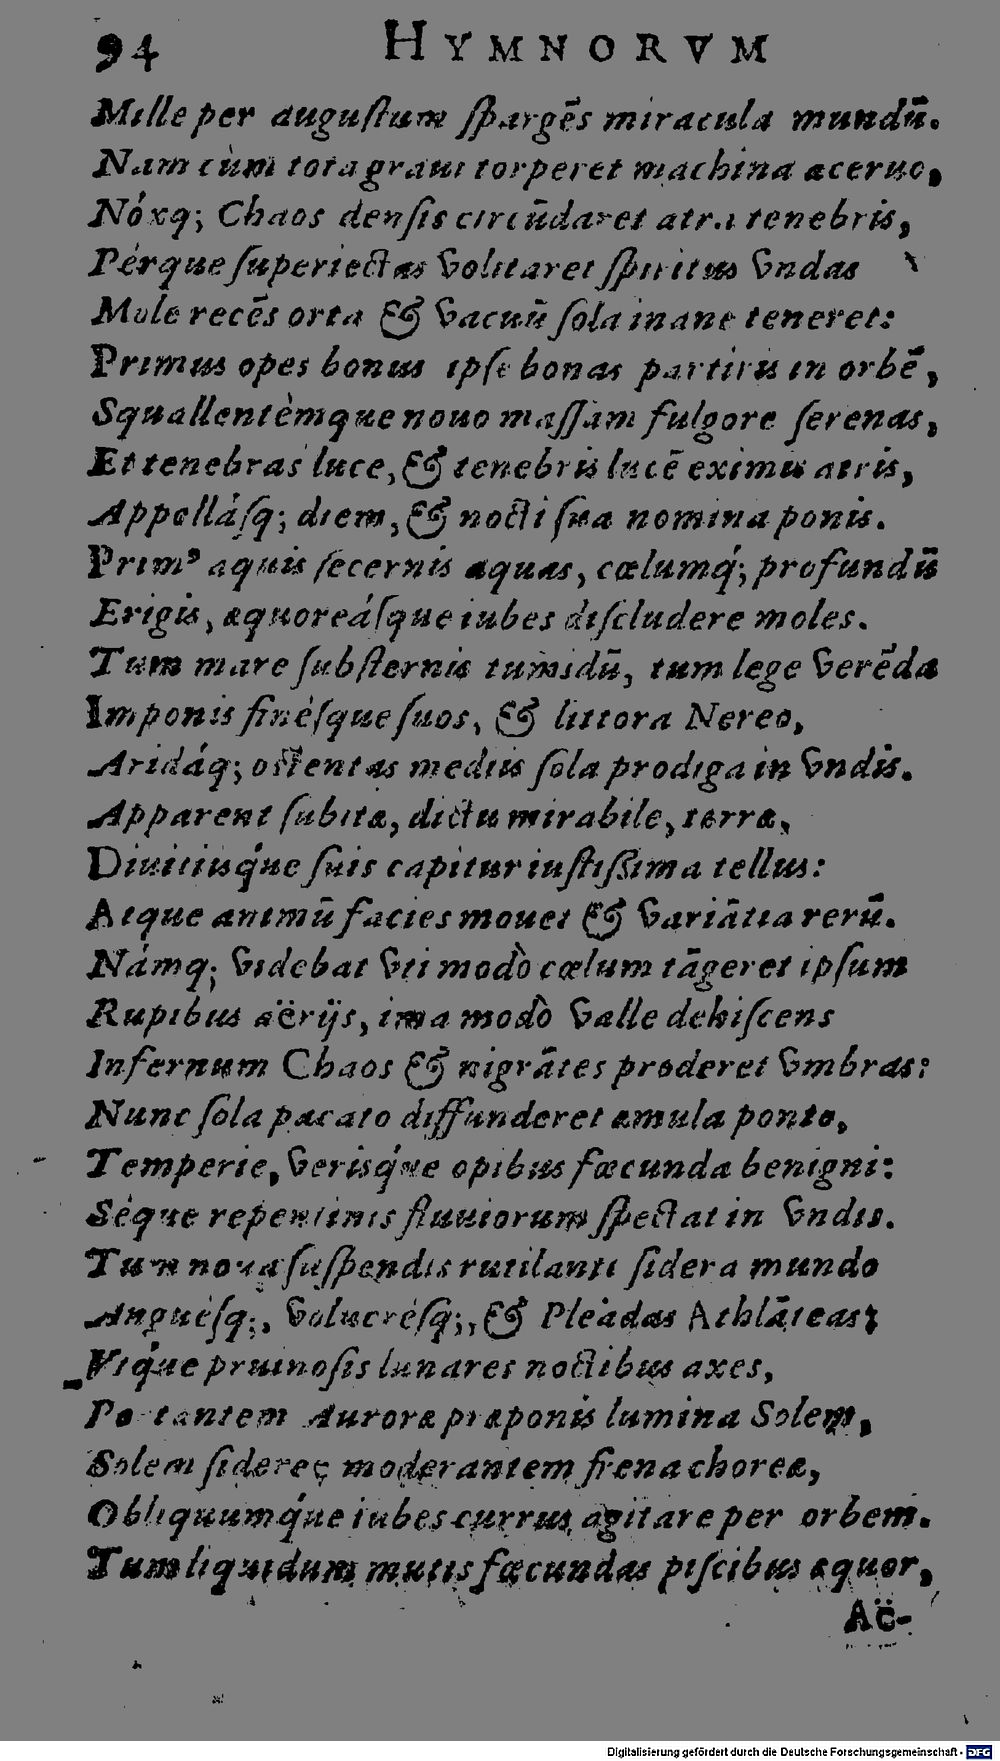 94 HYMNORVM
Mille per auguſtum ſpargēs miracula mundū.
Nam cùm tota graui torperet machina aceruo,
Nóxq; Chaos denſis circūdaret atra tenebris,
Pérque ſuperiectas volitaret ſpiritus vndas
Mole recēs orta & vacuū ſola inane teneret:
Primus opes bonus ipſe bonas partiris in orbē,
Squallentèmque nouo maſſam fulgore ſerenas,
Et tenebras luce, & tenebris lucē eximis atris,
Appelláſq; diem, & nocti ſua nomina ponis.
Primꝰ aquis ſecernis aquas, cœlumq́; profundū
Erigis, æquoreáſque iubes diſcludere moles.
Tum mare ſubſternis tumidū, tum lege verēda
Imponis finéſque ſuos, & littora Nereo,
Aridáq; oſtentas mediis ſola prodiga in vndis.
Apparent ſubitæ, dictu mirabile, terræ,
Diuitiisq́ue ſuis capitur iuſtiſſima tellus:
Atque animū facies mouet & variātia rerū.
Námq; videbat vti modò cœlum tāgeret ipſum
Rupibus aërijs, ima modò valle dehiſcens
Infernum Chaos & nigrātes proderet vmbras:
Nunc ſola pacato diffunderet æmula ponto,
Temperie, verisq́ue opibus fœcunda benigni:
Séque repentinis fluuiorum ſpectat in vndis.
Tum noua ſuſpendis rutilanti ſidera mundo
Anguéſq;, volucréſq;, & Pleiadas Athlāteas:
Vtq́ue pruinoſis lunares noctibus axes,
Portantem Auroræ præponis lumina Solem,
Solem ſidereę moderantem frena choreæ,
Obliquumq́ue iubes currus agitare per orbem.
Tum liquidum mutis fœcundas piſcibus æquor,
Aë-
Digitalisierung gefördert durch die Deutsche Forschungsgemeinschaft - DFG